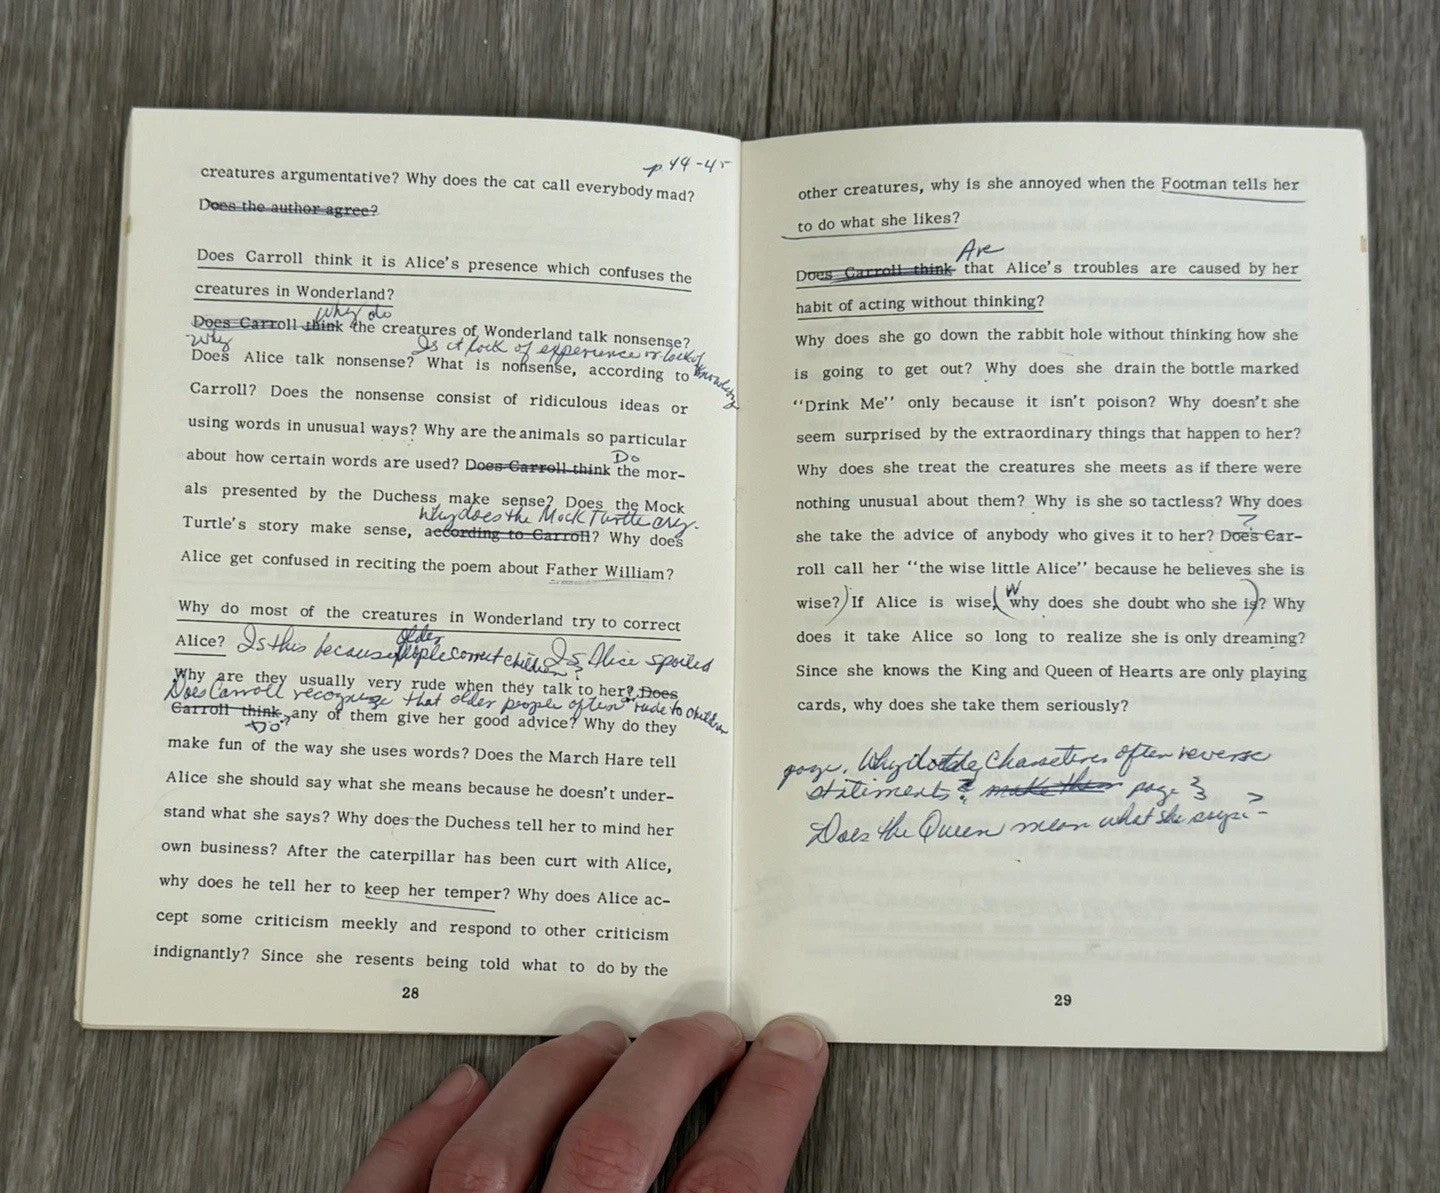 p 44-45
creatures argumentative? Why does the cat call everybody mad?
Does the author agree?
Does Carroll think it is Alice's presence which confuses the
creatures in Wonderland?
why do
Does Carroll think the creatures of Wonderland talk nonsense?
Why
Is it lack of experience or lack of knowledge
Does Alice talk nonsense? What is nonsense, according to
Carroll? Does the nonsense consist of ridiculous ideas or
using words in unusual ways? Why are the animals so particular
Do
about how certain words are used? Does Carroll think the mor-
als presented by the Duchess make sense? Does the Mock
Why does the Mock Turtle cry.
Turtle's story make sense, according to Carroll? Why does
Alice get confused in reciting the poem about Father William?
Why do most of the creatures in Wonderland try to correct
older
Alice? Is this because people correct children? Is Alice spoiled
Why are they usually very rude when they talk to her? Does
Does Carroll recognize that older people often rude to children
Carroll think any of them give her good advice? Why do they
Do
make fun of the way she uses words? Does the March Hare tell
Alice she should say what she means because he doesn't under-
stand what she says? Why does the Duchess tell her to mind her
own business? After the caterpillar has been curt with Alice,
why does he tell her to keep her temper? Why does Alice ac-
cept some criticism meekly and respond to other criticism
indignantly? Since she resents being told what to do by the
28
other creatures, why is she annoyed when the Footman tells her
to do what she likes?
Are
Does Carroll think that Alice's troubles are caused by her
habit of acting without thinking?
Why does she go down the rabbit hole without thinking how she
is going to get out? Why does she drain the bottle marked
"Drink Me" only because it isn't poison? Why doesn't she
seem surprised by the extraordinary things that happen to her?
Why does she treat the creatures she meets as if there were
nothing unusual about them? Why is she so tactless? Why does
?
she take the advice of anybody who gives it to her? Does Car-
roll call her "the wise little Alice" because he believes she is
W
wise?) If Alice is wise, (why does she doubt who she is)? Why
does it take Alice so long to realize she is only dreaming?
Since she knows the King and Queen of Hearts are only playing
cards, why does she take them seriously?
page. Why do the Characters often reverse
statements? make them page 3
Does the Queen mean what she says?
29